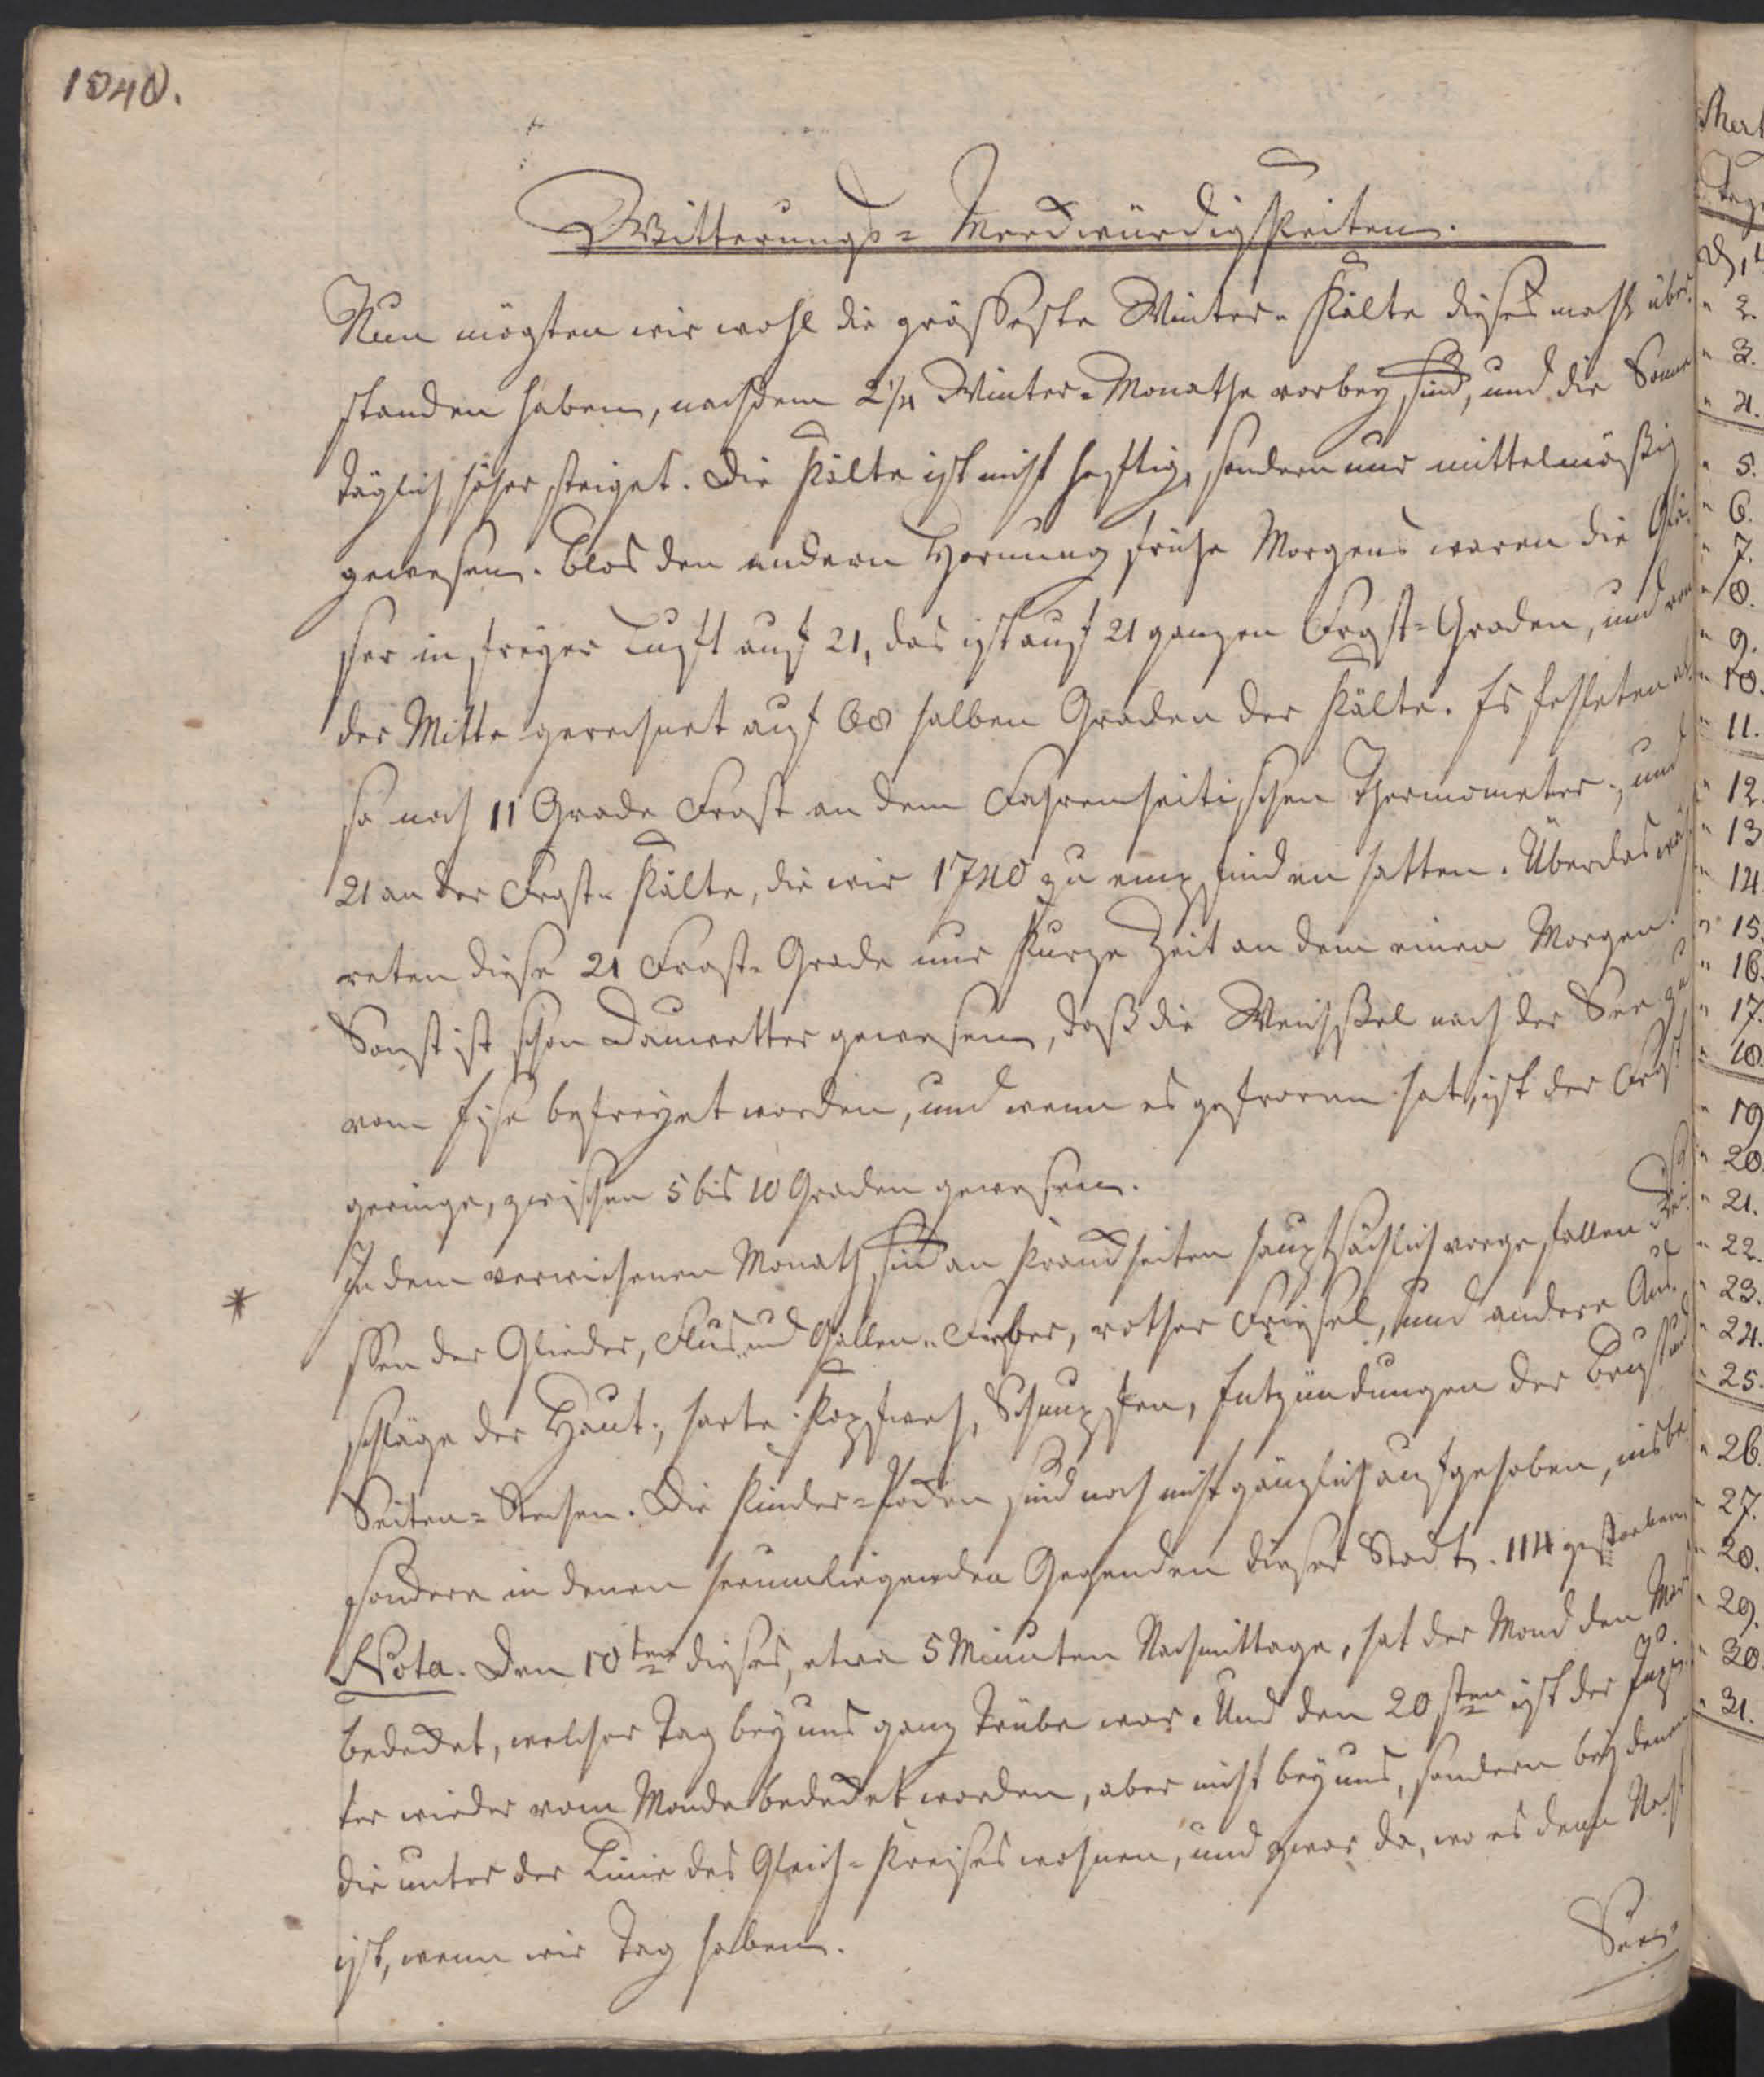 1040.
Witterungs= Merckwürdigkeiten.
Nun mögten wir wohl die grösseste Winter= Kälte dieses mahl über
standen haben, nachdem 2¼ Winter=Monathe vorbey sind, und die Sonne
täglich höher steiget. Die Kälte ist nicht heftig, sondern nur mittelmäßig
gewesen. Blos den andern Hornung frühe Morgens waren die Glä-
ser in freyer Luft auf 21, das ist auf 21 ganzen Frost=Graden, und von
der Mitte gerechnet auf 68 halben Graden der Kälte. Es fehleten al-
so noch 11 Grade Frost an dem Fahrenheitischen Thermometer, und
21 an der Frost=Kälte, die wir 1740 zu empfinden hatten. Überdas wäh-
reten diese 21 Frost=Grade nur kurze Zeit an dem einen Morgen.
Sonst ist schon Dauwetter gewesen, daß die Weichßel nach der See zu
vom Eise befreyet worden, und wenn es gefroren hat, ist der Frost
geringe, zwischen 5 bis 10 Graden gewesen.
* In dem verwichenen Monath sind an Kranckheiten hauptsächlich vorgefallen Rei-
ssen der Glieder, Flus und Gallen=Fieber, rother Friesel, und andere Aus-
schläge der Haut, harte Kopfweh, Schnupfen, Entzündungen der Brust und
Seiten=Stechen. Die Kinder=Pocken sind noch nicht gänzlich aufgehoben, insbe-
sondere in denen herumliegenden Gegenden dieser Stadt. 114 gestorben.
Nota. Den 10ten dieses, etwa 5 Minuten Nachmittage, hat der Mond den Mar
bedecket, welcher Tag bey uns ganz trübe war. Und den 20sten ist der Jupi-
ter wieder vom Monde bedecket worden, aber nicht bey uns, sondern bey denen
die unter der Linie des Gleich=Kreises wohnen, und zwar da, wo es denn Nacht
ist, wenn wir Tag haben.
See=
2.
3.
4.
5.
6.
7.
8.
9.
10.
11.
12.
13
14.
15.
16.
17.
18.
19
20
21.
22.
23.
24.
25.
26.
27.
28.
29.
30.
31.